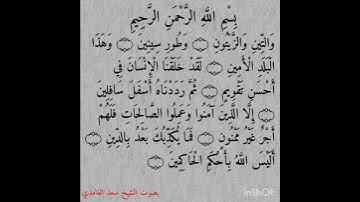 بِسْمِ اللَّهِ الرَّحْمَنِ الرَّحِيمِ
وَالتِّينِ وَالزَّيْتُونِ ۝ وَطُورِ سِينِينَ ۝ وَهَذَا
الْبَلَدِ الْأَمِينِ ۝ لَقَدْ خَلَقْنَا الْإِنْسَانَ فِي
أَحْسَنِ تَقْوِيمٍ ۝ ثُمَّ رَدَدْنَاهُ أَسْفَلَ سَافِلِينَ
۝ إِلَّا الَّذِينَ آمَنُوا وَعَمِلُوا الصَّالِحَاتِ فَلَهُمْ
أَجْرٌ غَيْرُ مَمْنُونٍ ۝ فَمَا يُكَذِّبُكَ بَعْدُ بِالدِّينِ ۝
أَلَيْسَ اللَّهُ بِأَحْكَمِ الْحَاكِمِينَ ۝
بصوت الشيخ سعد الغامدي
InShOt